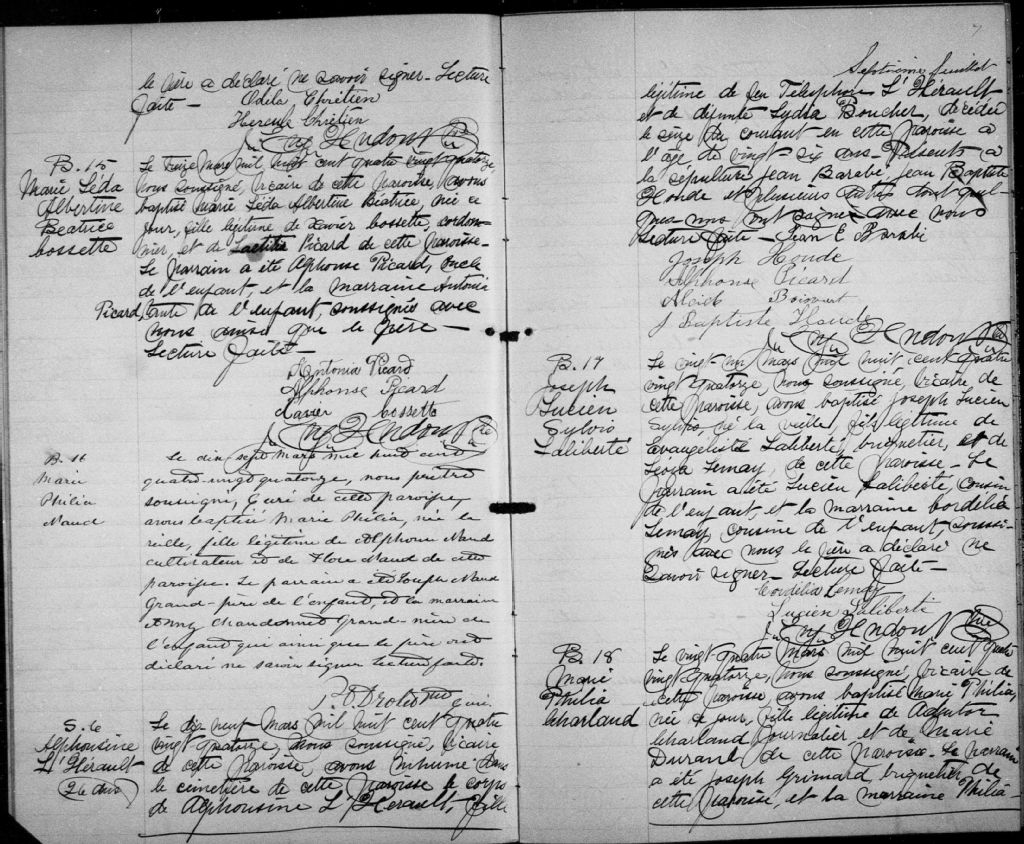 le père a déclaré ne savoir signer - Lecture
faite -
Odila Chrétien
Hercule Chrétien
B. 15
Marie Léda
Albertine
Béatrice
bossette
Le treize mars mil huit cent quatre vingt quatorze,
nous soussigné, vicaire de cette paroisse, avons
baptisé Marie Léda Albertine Béatrice, née ce
jour, fille légitime de Xavier bossette, cordon-
nier, et de Laetitia Picard de cette paroisse -
Le parrain a été Alphonse Picard, oncle
de l'enfant, et la marraine Antonia
Picard, tante de l'enfant, soussignés avec
nous ainsi que le père -
Lecture faite -
Antonia Picard
Alphonse Picard
Xavier bossette
B. 16
Marie
Philia
Naud
Le dix sept mars mil huit cent
quatre-vingt quatorze, nous prêtre
soussigné, Curé de cette paroisse,
avons baptisé Marie Philia, née la
veille, fille légitime de Alphonse Naud
cultivateur et de Flore Naud de cette
paroisse. Le parrain a été Joseph Naud
Grand-père de l'enfant, et la marraine
Grand-mère de
l'enfant qui ainsi que le père ont
déclaré ne savoir signer lecture faite.
curé
S. 6
Alphonsine
L'Hérault
26 ans
Le dix neuf mars mil huit cent quatre
vingt quatorze, nous soussigné, vicaire
de cette paroisse, avons inhumé dans
le cimetière de cette paroisse le corps
de Alphonsine L'Hérault, fille
7
Septième feuillet
légitime de feu Télesphore L'Hérault
et de défunte Lydia Boucher, décédée
le seize du courant en cette paroisse à
l'âge de vingt-six ans - Présents à
la sépulture Jean Barabé, Jean Baptiste
Houde et plusieurs autres dont quel-
ques-uns ont signé avec nous
Lecture faite - Jean E Barabé
Joseph Houde
Alphonse Picard
Alcide Boisvert
J Baptiste Houde
B. 17
Joseph
Lucien
Sylvio
Laliberté
Le vingt-un mars mil huit cent quatre
vingt quatorze, nous soussigné, vicaire de
cette paroisse, avons baptisé Joseph Lucien
Sylvio, né la veille, fils légitime de
Evangéliste Laliberté, briquetier, et de
Lemay, de cette paroisse - Le
parrain a été Lucien Laliberté, cousin
de l'enfant, et la marraine bordélia
Lemay cousine de l'enfant, soussi-
gnés avec nous le père a déclaré ne
savoir signer - Lecture faite -
Cordélia Lemay
Lucien Laliberté
B. 18
Marie
Philia
Charland
Le vingt quatre mars mil huit cent quatre
vingt quatorze, nous soussigné, vicaire de
cette paroisse avons baptisé Marie Philia,
née ce jour, fille légitime de Adjutor
Charland journalier et de Marie
Durand de cette paroisse - Le parrain
a été Joseph Grimard briquetier, de
cette paroisse, et la marraine Philia